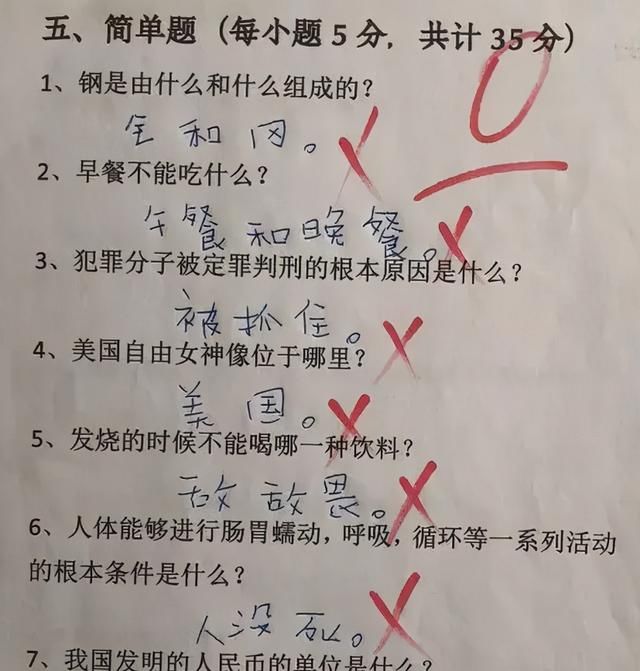 五、简单题（每小题 5 分，共计 35 分）
0
1、钢是由什么和什么组成的？
全和冈。
2、早餐不能吃什么？
午餐和晚餐。
3、犯罪分子被定罪判刑的根本原因是什么？
被抓住。
4、美国自由女神像位于哪里？
美国。
5、发烧的时候不能喝哪一种饮料？
敌敌畏。
6、人体能够进行肠胃蠕动，呼吸，循环等一系列活动
的根本条件是什么？
人没死。
7、我国发明的人民币的单位是什么？